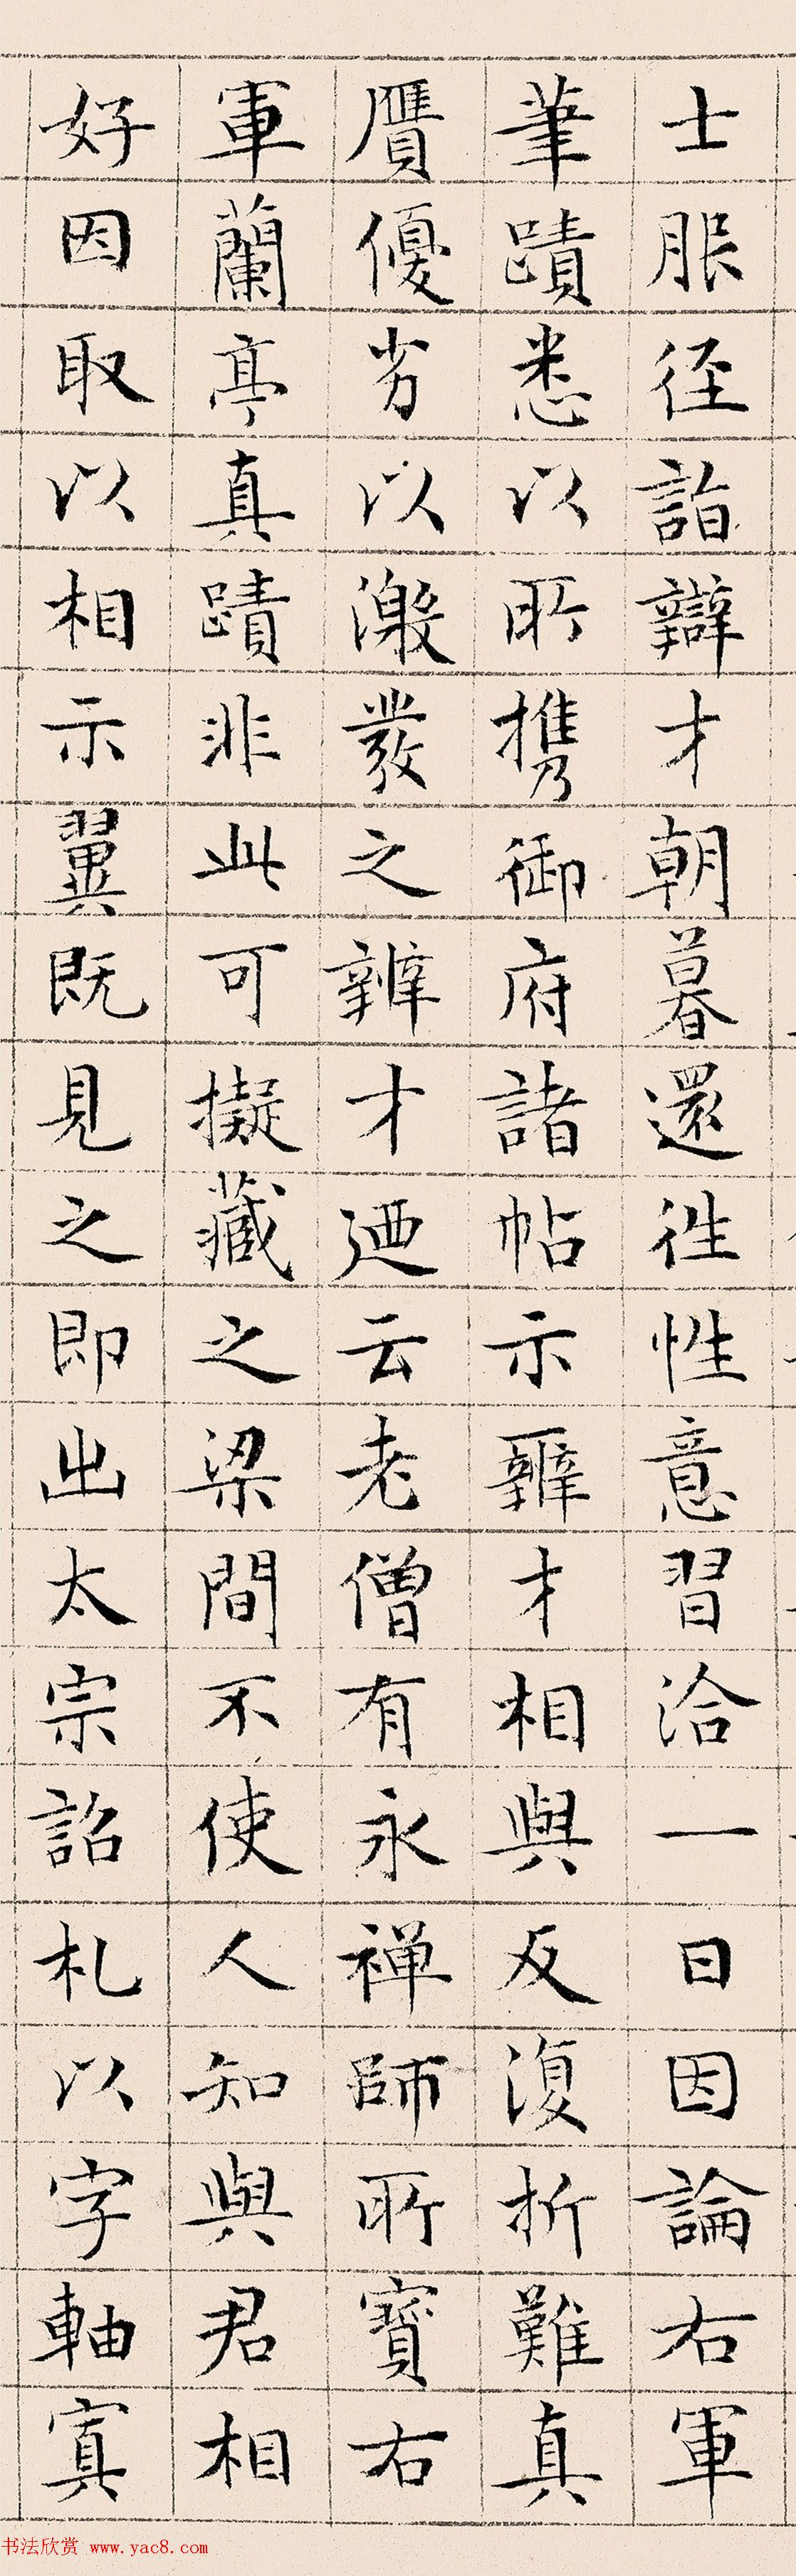 士服径詣辯才朝暮還往性意習洽一日因論右軍
筆蹟悉以所攜御府諸帖示辯才相與反復折難真
贋優劣以激發之辨才迺云老僧有永禪師所寶右
軍蘭亭真蹟非此可擬藏之梁間不使人知與君相
好因取以相示翼既見之即出太宗詔札以字軸寘
书法欣赏 www.yac8.com